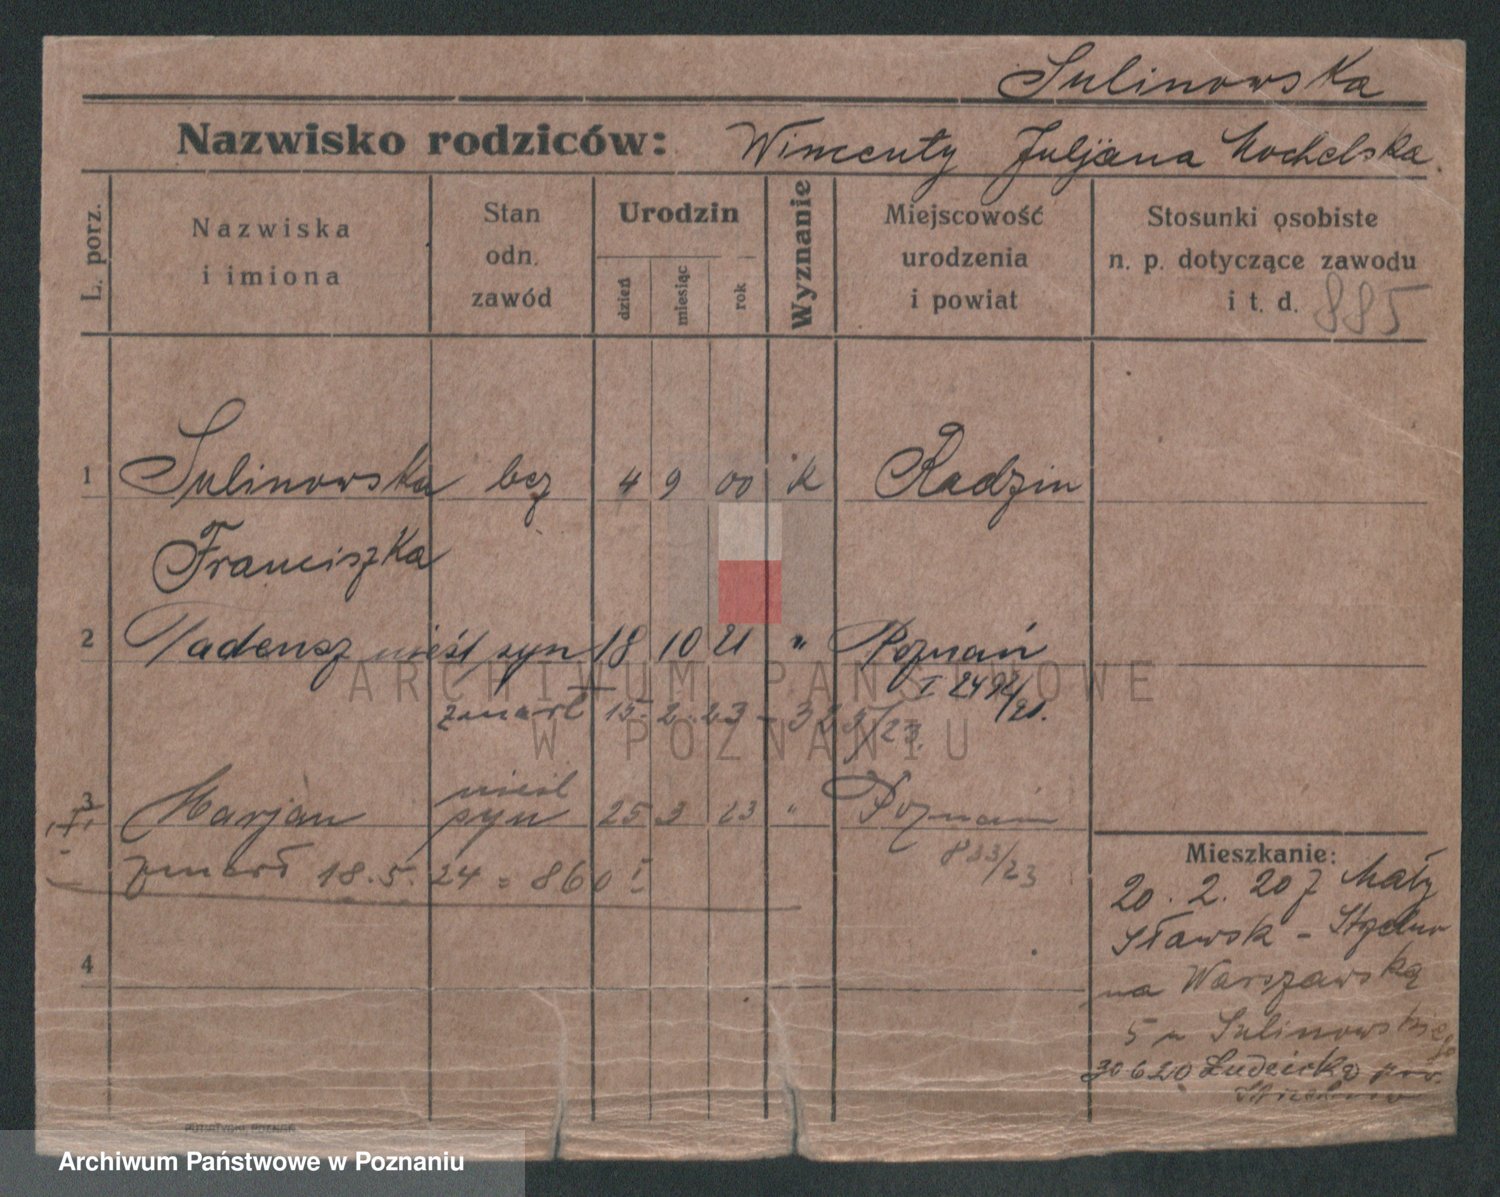 Sulinowska
Nazwisko rodziców: Wincenty Juljana Mochelska
L. porz.
Nazwiska
i imiona
Stan
odn.
zawód
Urodzin
dzień
miesiąc
rok
Wyznanie
Miejscowość
urodzenia
i powiat
Stosunki osobiste
n. p. dotyczące zawodu
i t. d. 885
1 Sulinowska bez 4 9 00 K Radzin
Franciszka
2 Tadeusz nieśl syn 18 10 21 " Poznań
I 2492/21.
zmarł 15. 2. 23 - 325/23.
ARCHIWUM PAŃSTWOWE
W POZNANIU
3 Marjan nieśl syn 25 3 23 " Poznań
833/23
zmarł 18.5.24 = 860 I
4
Mieszkanie:
20. 2. 20 z Mały
Sławsk - Strzelno
na Warszawską
5 u Sulinowskiego
30 6 20 pow.
Strzelno
PUTIATYCKI, POZNAŃ
Archiwum Państwowe w Poznaniu